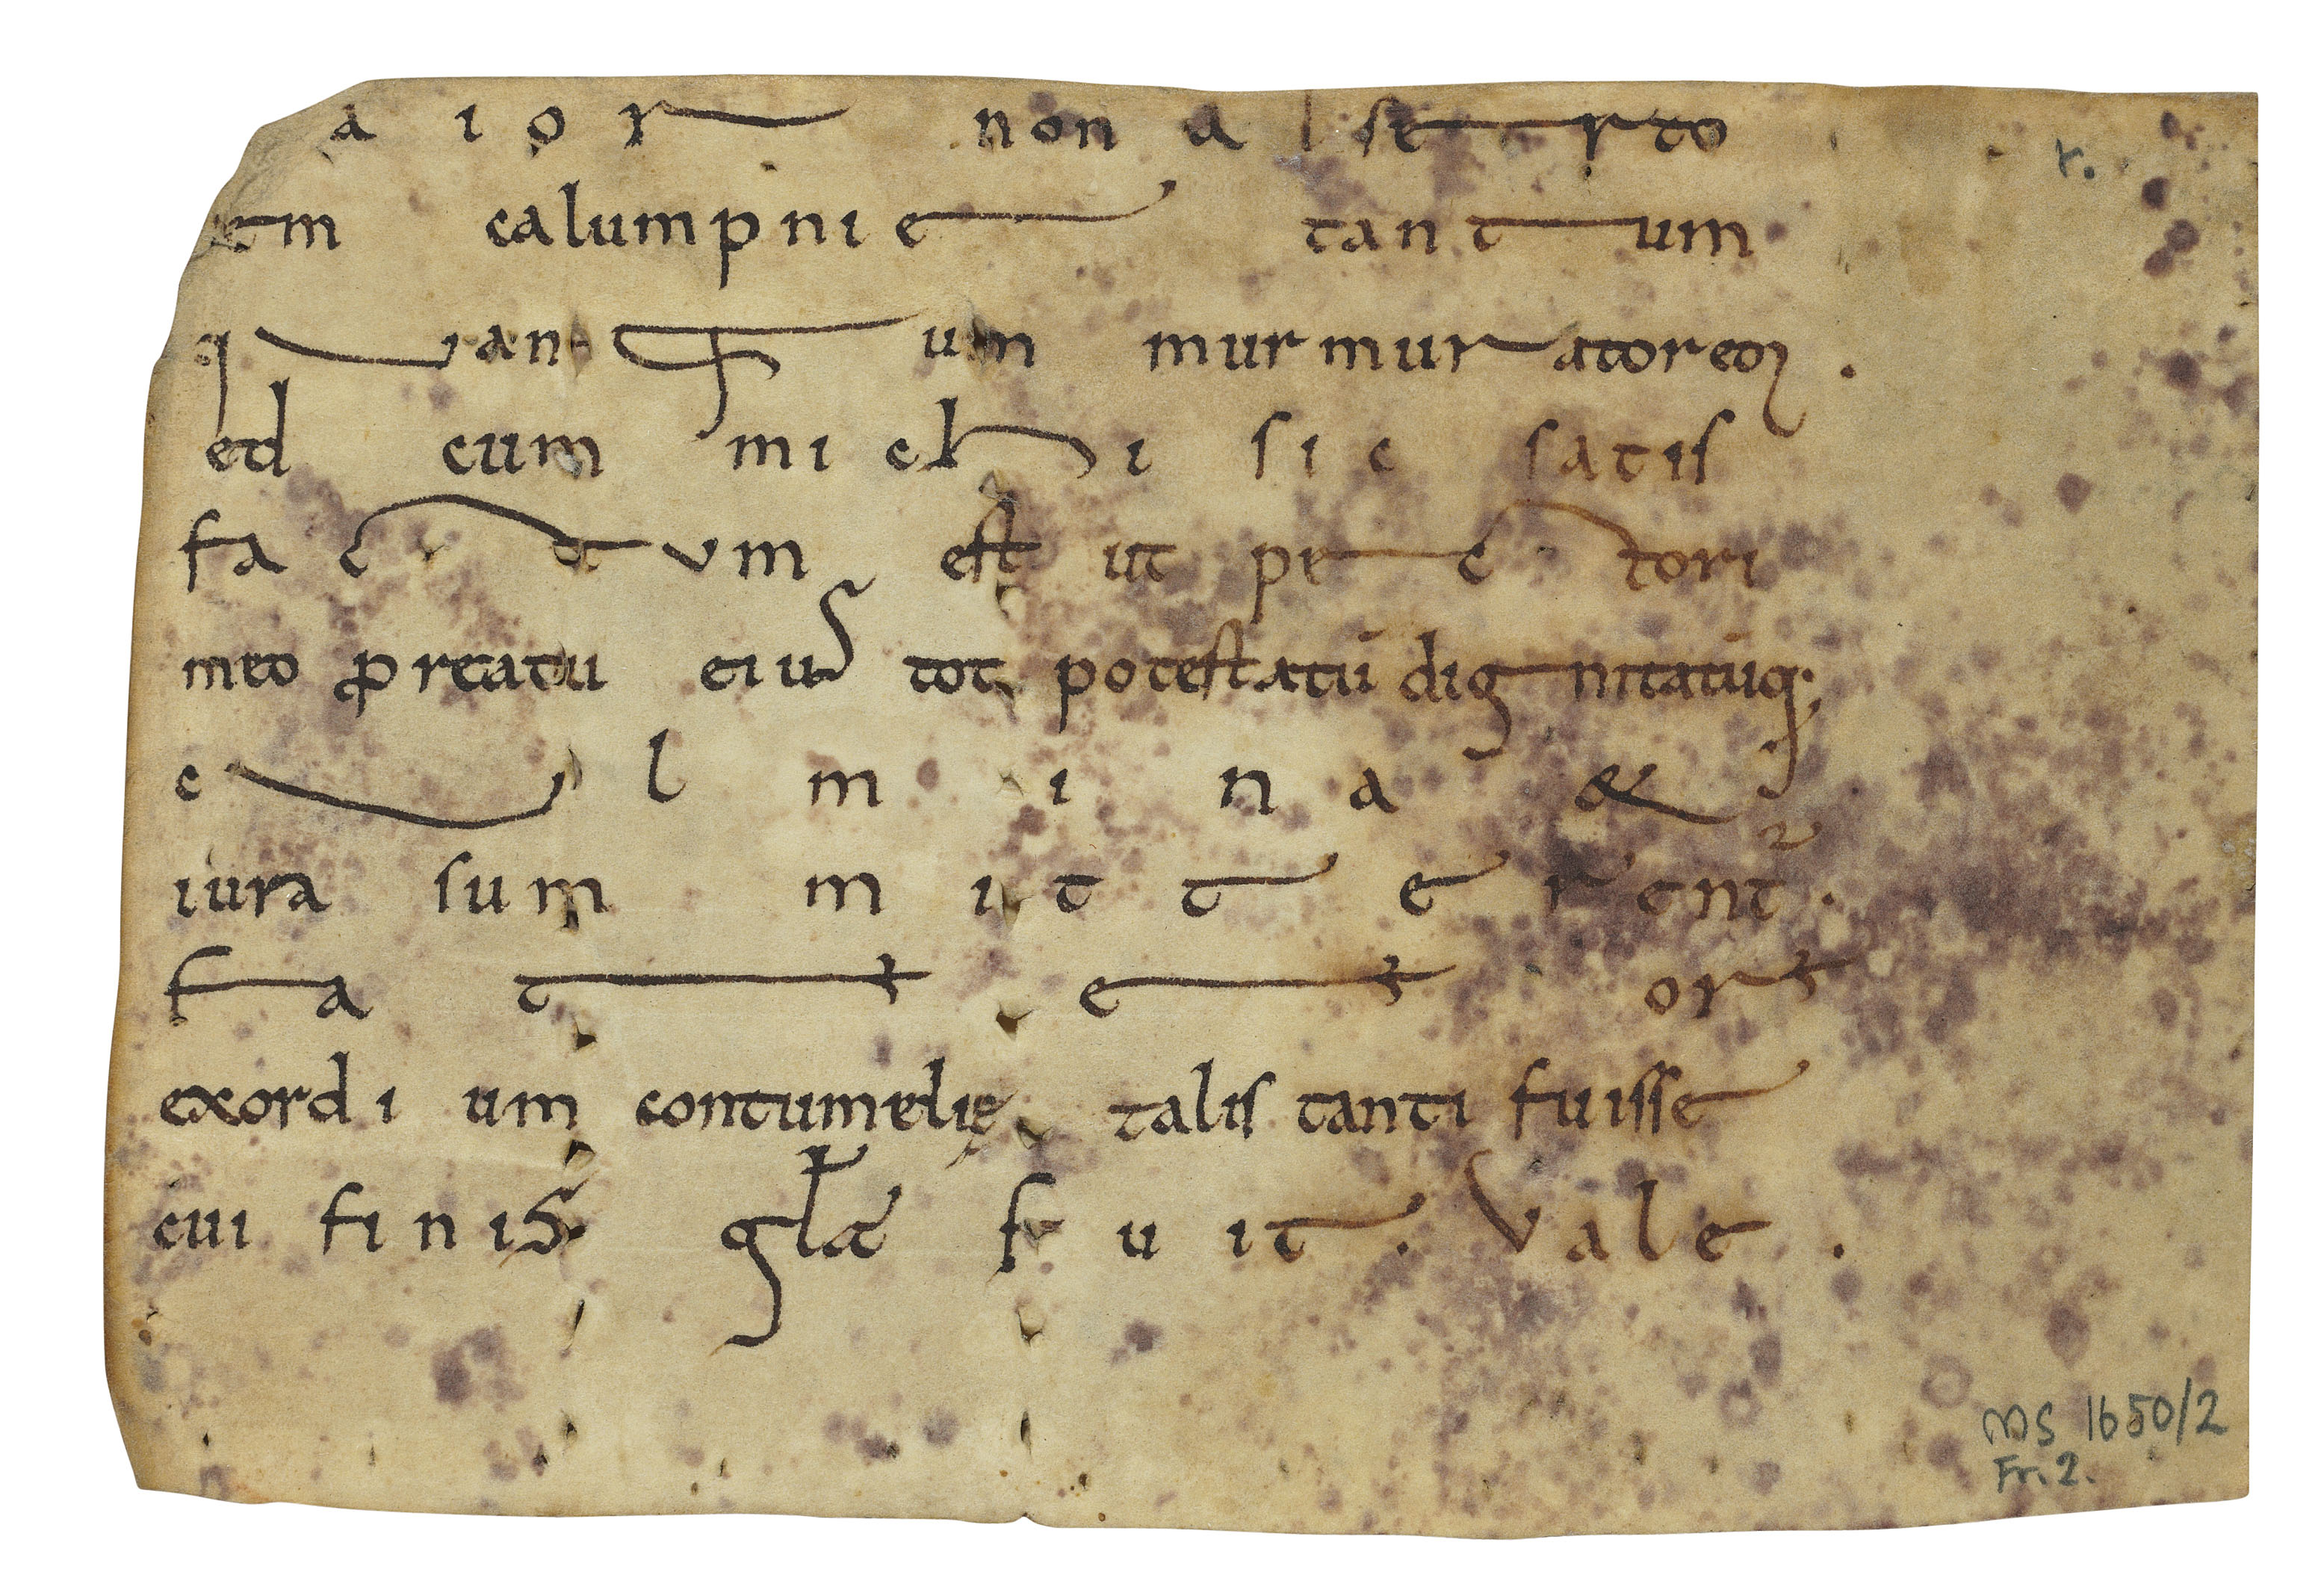 aior non asserto
em calumpnie tantum
quantum murmuratorem.
ed cum michi sic satis
factum est ut pectori
meo ꝓ reatu eius tot potestatū dignitatūq;
culmina &
iura summitterent᷑.
fateor
exordium contumelię talis tanti fuisse
cui finis gła fuit. Vale.
r.
MS 1650/2
Fr. 2.